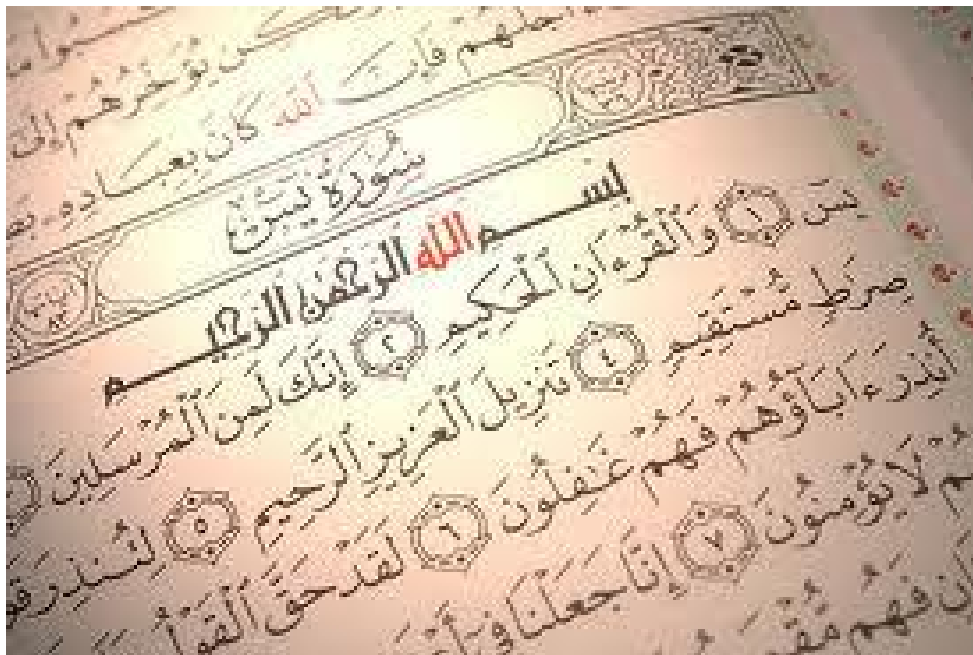 يُؤَخِّرُهُمْ إِلَىٰ
أَجَلُهُمْ فَإِنَّ ٱللَّهَ كَانَ بِعِبَادِهِۦ
سُورَةُ يسٓ
بِسْمِ ٱللَّهِ ٱلرَّحْمَٰنِ ٱلرَّحِيمِ
يسٓ ١ وَٱلْقُرْءَانِ ٱلْحَكِيمِ ٢ إِنَّكَ لَمِنَ ٱلْمُرْسَلِينَ
صِرَٰطٍ مُّسْتَقِيمٍ ٤ تَنزِيلَ ٱلْعَزِيزِ ٱلرَّحِيمِ ٥ لِتُنذِرَ
أُنذِرَ ءَابَآؤُهُمْ فَهُمْ غَٰفِلُونَ ٦ لَقَدْ حَقَّ ٱلْقَوْلُ
لَا يُؤْمِنُونَ ٧ إِنَّا جَعَلْنَا فِىٓ
فَهُم